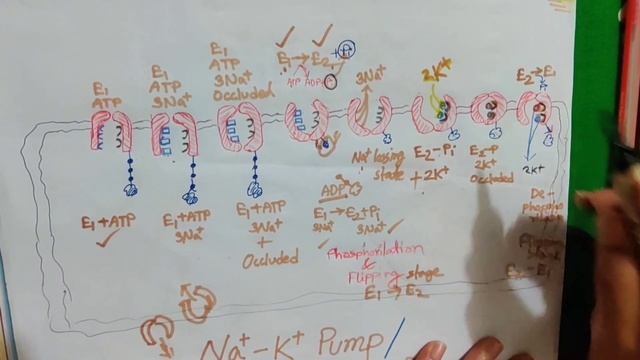 E₁
ATP
E₁
ATP
3Na⁺
E₁
ATP
3Na⁺
Occluded
E₁→E₂ +Pi
ATP ADP P
3Na⁺
2K⁺
E₂→E₁
2K⁺
E₁+ATP
E₁+ATP
3Na⁺
E₁+ATP
3Na⁺
+
Occluded
ADP
E₁→E₂+Pi
3Na⁺ 3Na⁺
Phosphorilation
&
Flipping stage
E₁→E₂
Na⁺ losing
state
E₂-Pi
+2K⁺
E₂-P
2K⁺
Occluded
De-
Flipping
Na⁺-K⁺ Pump